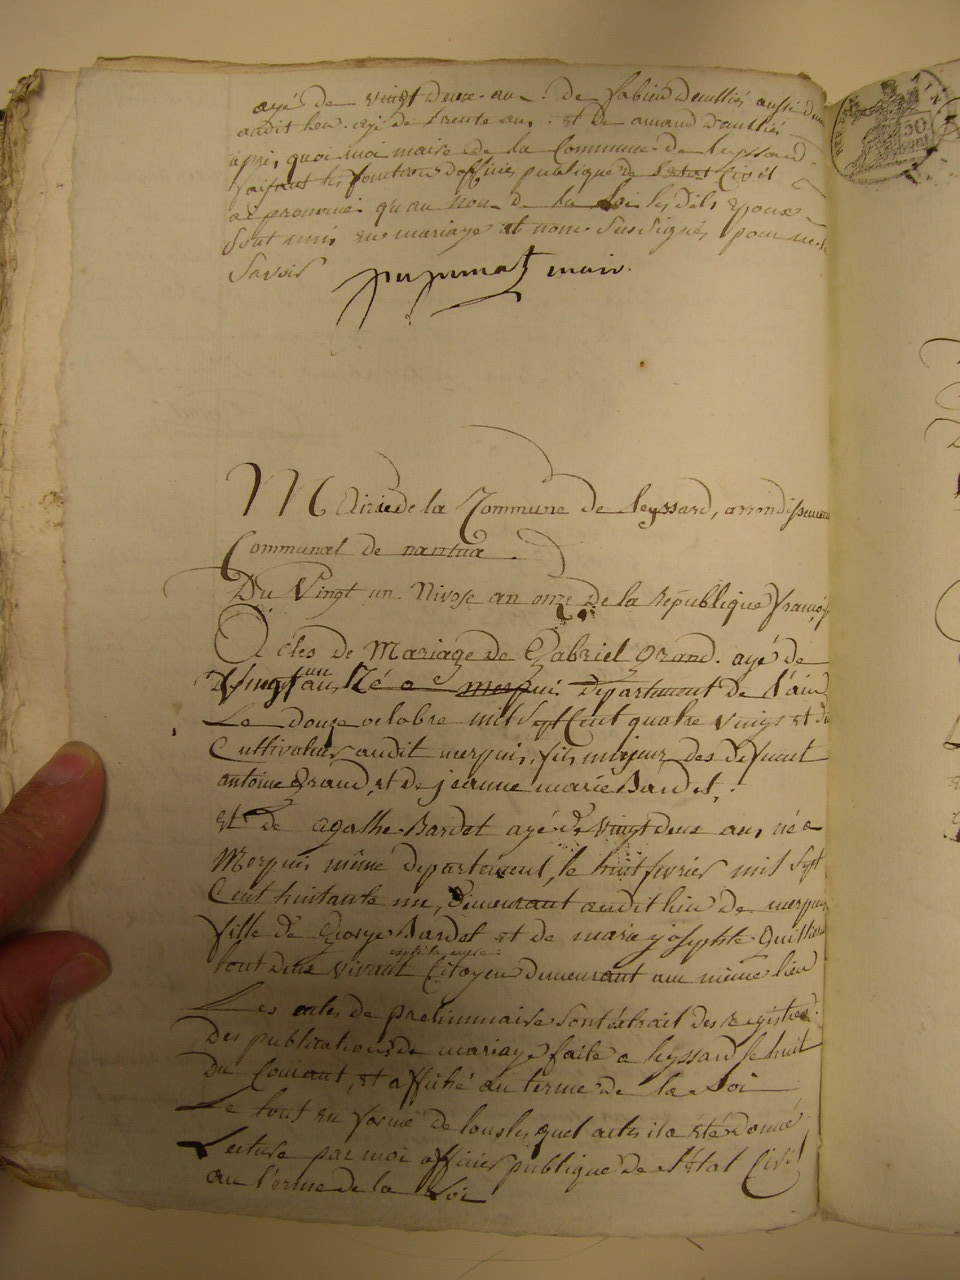 agé de vingt deux ans. de fabien deullié aussi du
audit lieu. agé de trente ans, et de amand
après quoi moi maire de la Commune de leyssard
faisant les fonctions d'officier publique de l'etat Civil
a prononcé qu'au nom de la loi les dits epoux
sont unis en mariage et nous sussigné, pour ne
savoir
maire.
Mairie de la Commune de leyssard, arrondissement
Communal de nantua.
Du Vingt un Nivose an onze de la Republique françoise
Actes de Mariage de Gabriel Grand. agé de
Vingt un ans, Né a merpuis Departement de l'ain
Le douze octobre mil sept Cent quatre vingt et
Cultivateur audit merpuis, fils majeur des defunt
antoine Grand, et de jeanne marie Bardet,
Et de agathe Bardet agé de vingt deux ans, né a
Merpuis même departement, le huit fevrier mil sept
Cent huitante un, Demeurant audit lieu de merpuis
fille de George Bardet et de marie josephte
tout deux vivant Citoyen demeurant au même lieu
Les actes de preliminaire sont extrait des registres
Des publications de mariage faite a leyssard le huit
Du Courant, et affiché au terme de la Loi
Le tout en forme de tous lesquel actes il a été donné
Lecture par moi officier publique de l'Etat Civil
au terme de la Loi
50